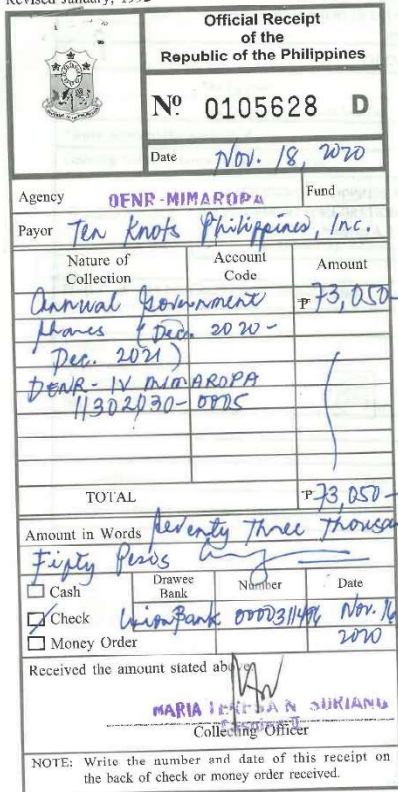 Revised January, 1992
Official Receipt
of the
Republic of the Philippines
Nº 0105628 D
Date Nov. 18, 2020
Agency DENR-MIMAROPA Fund
Payor Ten Knots Philippines, Inc.
Nature of Collection Account Code Amount
Annual Government ₱ 73,050-
shares (Dec. 2020-
Dec. 2021)
DENR-IV MIMAROPA
11302030-0005
TOTAL ₱ 73,050-
Amount in Words Seventy Three Thousan
Fifty Pesos only
Cash Drawee Bank Number Date
Check UnionBank Nov. 16
Money Order 2020
Received the amount stated above
MARIA TERESA N SURIANO
Collecting Officer
NOTE: Write the number and date of this receipt on
the back of check or money order received.